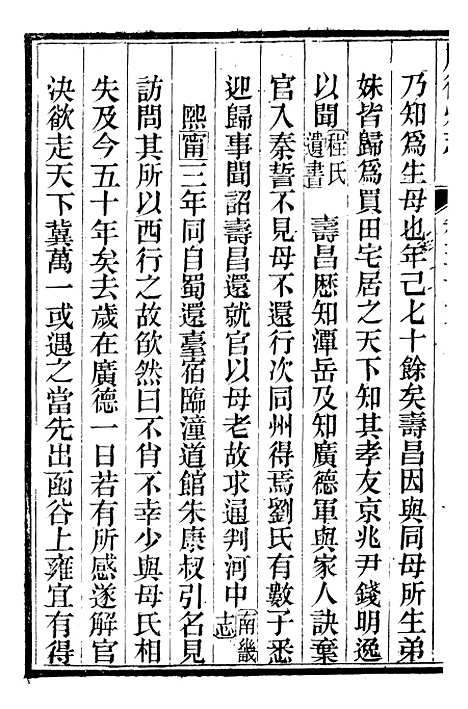 乃知為生母也年已七十餘矣壽昌因與同母所生弟
妹皆歸為買田宅居之天下知其孝友京兆尹錢明逸
以聞程氏遺書　壽昌歷知潭岳及知廣德軍與家人訣棄
官入秦誓不見母不還行次同州得焉劉氏有數子悉
迎歸事聞詔壽昌還就官以母老故求通判河中南畿志
熙甯三年同自蜀還臺宿臨潼道館朱康叔引名見
訪問其所以西行之故欲然曰不肖不幸少與母氏相
失及今五十年矣去歲在廣德一日若有所感遂解官
決欲走天下冀萬一或遇之當先出函谷上雍宜有得